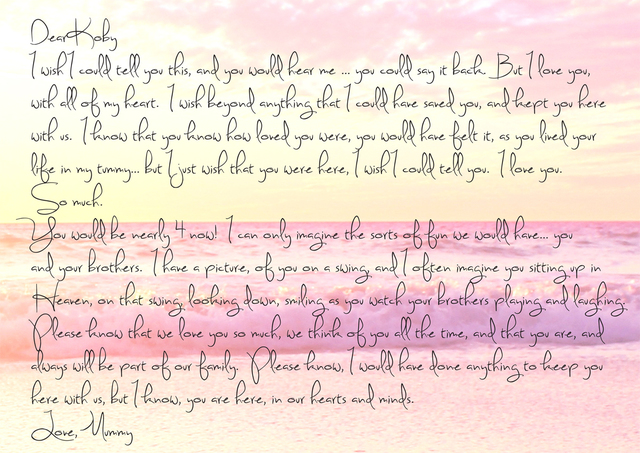 Dear Koby
I wish I could tell you this, and you would hear me ... you could say it back. But I love you,
with all of my heart. I wish beyond anything that I could have saved you, and kept you here
with us. I know that you know how loved you were, you would have felt it, as you lived your
life in my tummy... but I just wish that you were here, I wish I could tell you. I love you.
So much.
You would be nearly 4 now! I can only imagine the sorts of fun we would have... you
and your brothers. I have a picture, of you on a swing, and I often imagine you sitting up in
Heaven, on that swing, looking down, smiling as you watch your brothers playing and laughing.
Please know that we love you so much, we think of you all the time, and that you are, and
always will be part of our family. Please know, I would have done anything to keep you
here with us, but I know, you are here, in our hearts and minds.
Love, Mummy